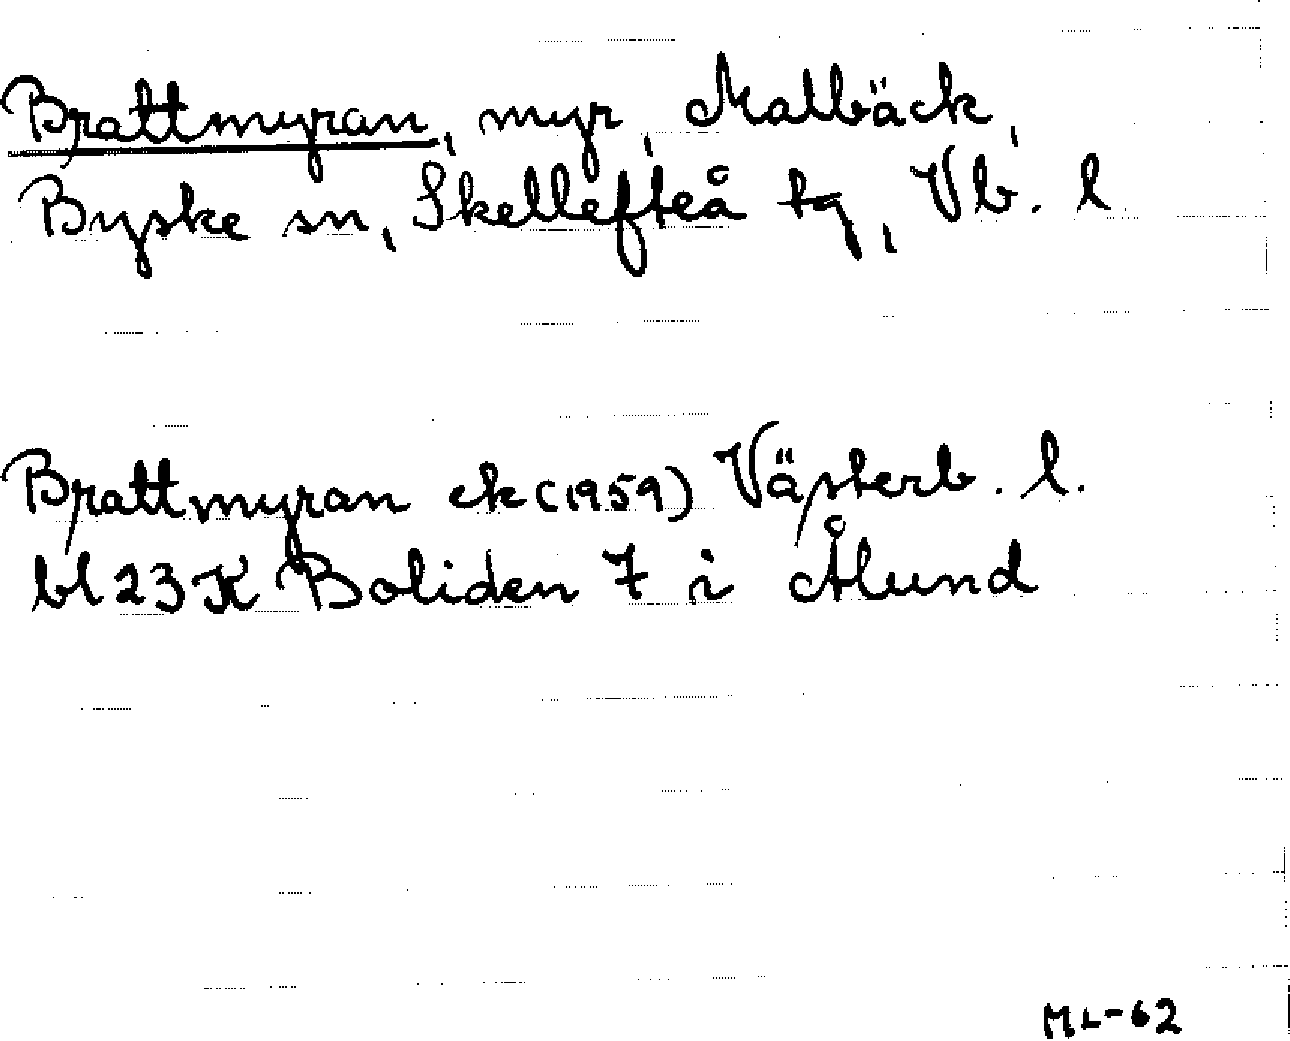 Brattmyran, myr, Malbäck,
Byske sn, Skellefteå tg, Vb. l
Brattmyran ek (1959) Västerb. l.
bl 23 K Boliden 7 i Ålund
ML-62